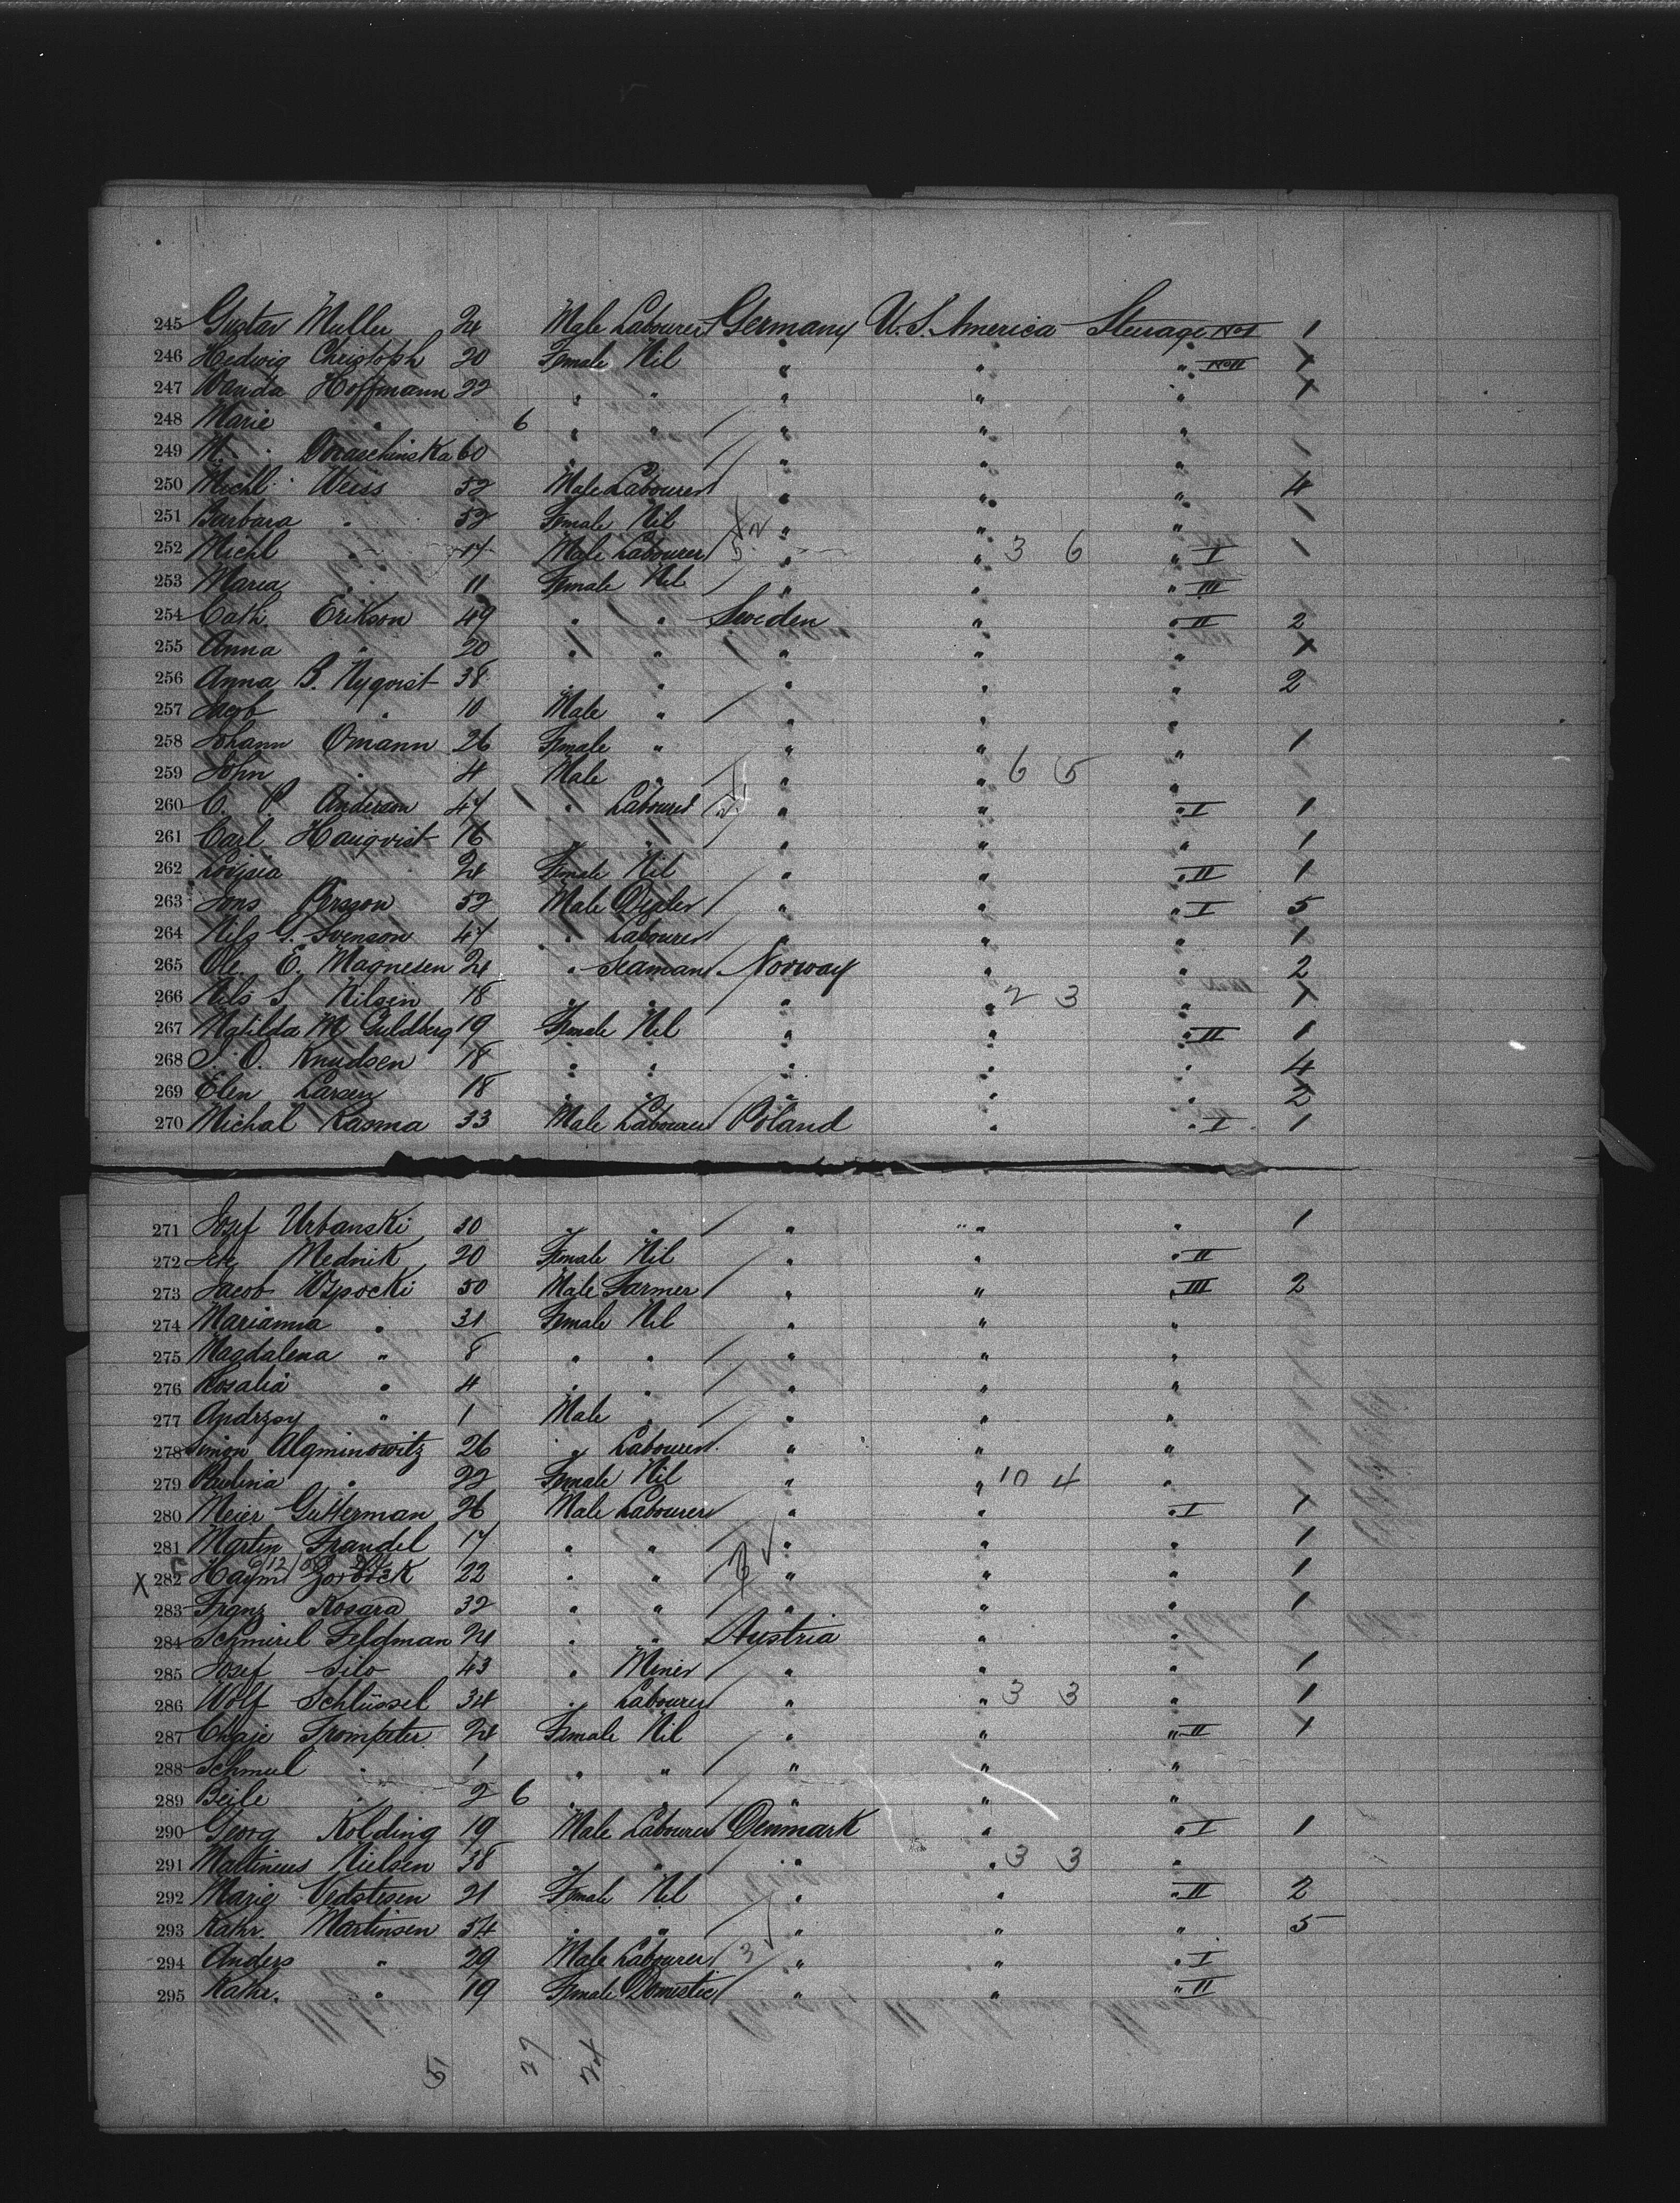 245 Gustav Muller 24 Male Labourer Germany U.S. America Steerage No I 1
246 Hedwig Christoph 20 Female Nil " " " No II 1
247 Wanda Hoffmann 22 " " " " " 1
248 Marie " 6 " " " " "
249 M. Doraschinska 60 " " " " " 1
250 Michl Weiss 52 Male Labourer " " " 4
251 Barbara " 52 Female Nil " " " 1
252 Michl " 17 Male Labourer " " 3 6 " I 1
253 Maria " 11 Female Nil " " " III
254 Cath. Erikson 49 " " Sweden " " II 2
255 Anna " 20 " " " " " 1
256 Anna B. Nyqvist 38 " " " " " 2
257 Jacob " 10 Male " " " "
258 Johann Omann 26 Female " " " " 1
259 John " 4 Male " " " 6 5 "
260 C. P. Anderson 47 " Labourer " " " I 1
261 Carl Hauqvist 16 " " " " " 1
262 Lovisia " 24 Female Nil " " " II 1
263 Jons Persson 52 Male " " " I 5
264 Nils G. Svenson 47 " Labourer " " " 1
265 Ole E. Magnesen 24 " Seaman Norway " " 2
266 Nils S Nilsen 18 " " " " 2 3 " 1
267 Matilda M Guldberg 19 Female Nil " " " II 1
268 S. O. Knudsen 18 " " " " " 4
269 Elen Larsen 18 " " " " " 2
270 Michal Kasma 33 Male Labourer Poland " " I 1
271 Josef Urbanski 30 " " " " " 1
272 Mednik 20 Female Nil " " " II
273 Jacob Wypocki 50 Male Farmer " " " III 2
274 Marianna " 31 Female Nil " " "
275 Magdalena " 8 " " " " "
276 Rosalia " 4 " " " " "
277 Andrzey " 1 Male " " " "
278 Simon Algminowitz 26 " Labourer " " "
279 Paulina " 22 Female Nil " " 10 4 "
280 Meier Gutterman 26 Male Labourer " " " I 1
281 Martin Frandel 17 " " " " " 1
X 282 Haym Zorback 22 " " " " " 1
283 Franz Kosara 32 " " " " " 1
284 Schmirel Feldman 24 " " Austria " "
285 Josef Silo 43 " Miner " " " 1
286 Wolf Schlüssel 34 " Labourer " " 3 3 " 1
287 Chaje Trompeter 24 Female Nil " " " II 1
288 Schmul " 1 " " " " "
289 Beile " 2 6 " " " " "
290 Georg Kolding 19 Male Labourer Denmark " " I 1
291 Martineus Nielsen 38 " " " " 3 3 "
292 Marie Vedstesen 21 Female Nil " " " II 2
293 Kathr. Martinsen 54 " " " " " 5
294 Anders " 29 Male Labourer 3 " " " I
295 Kathr. " 19 Female Domestic " " " II
5 27 24